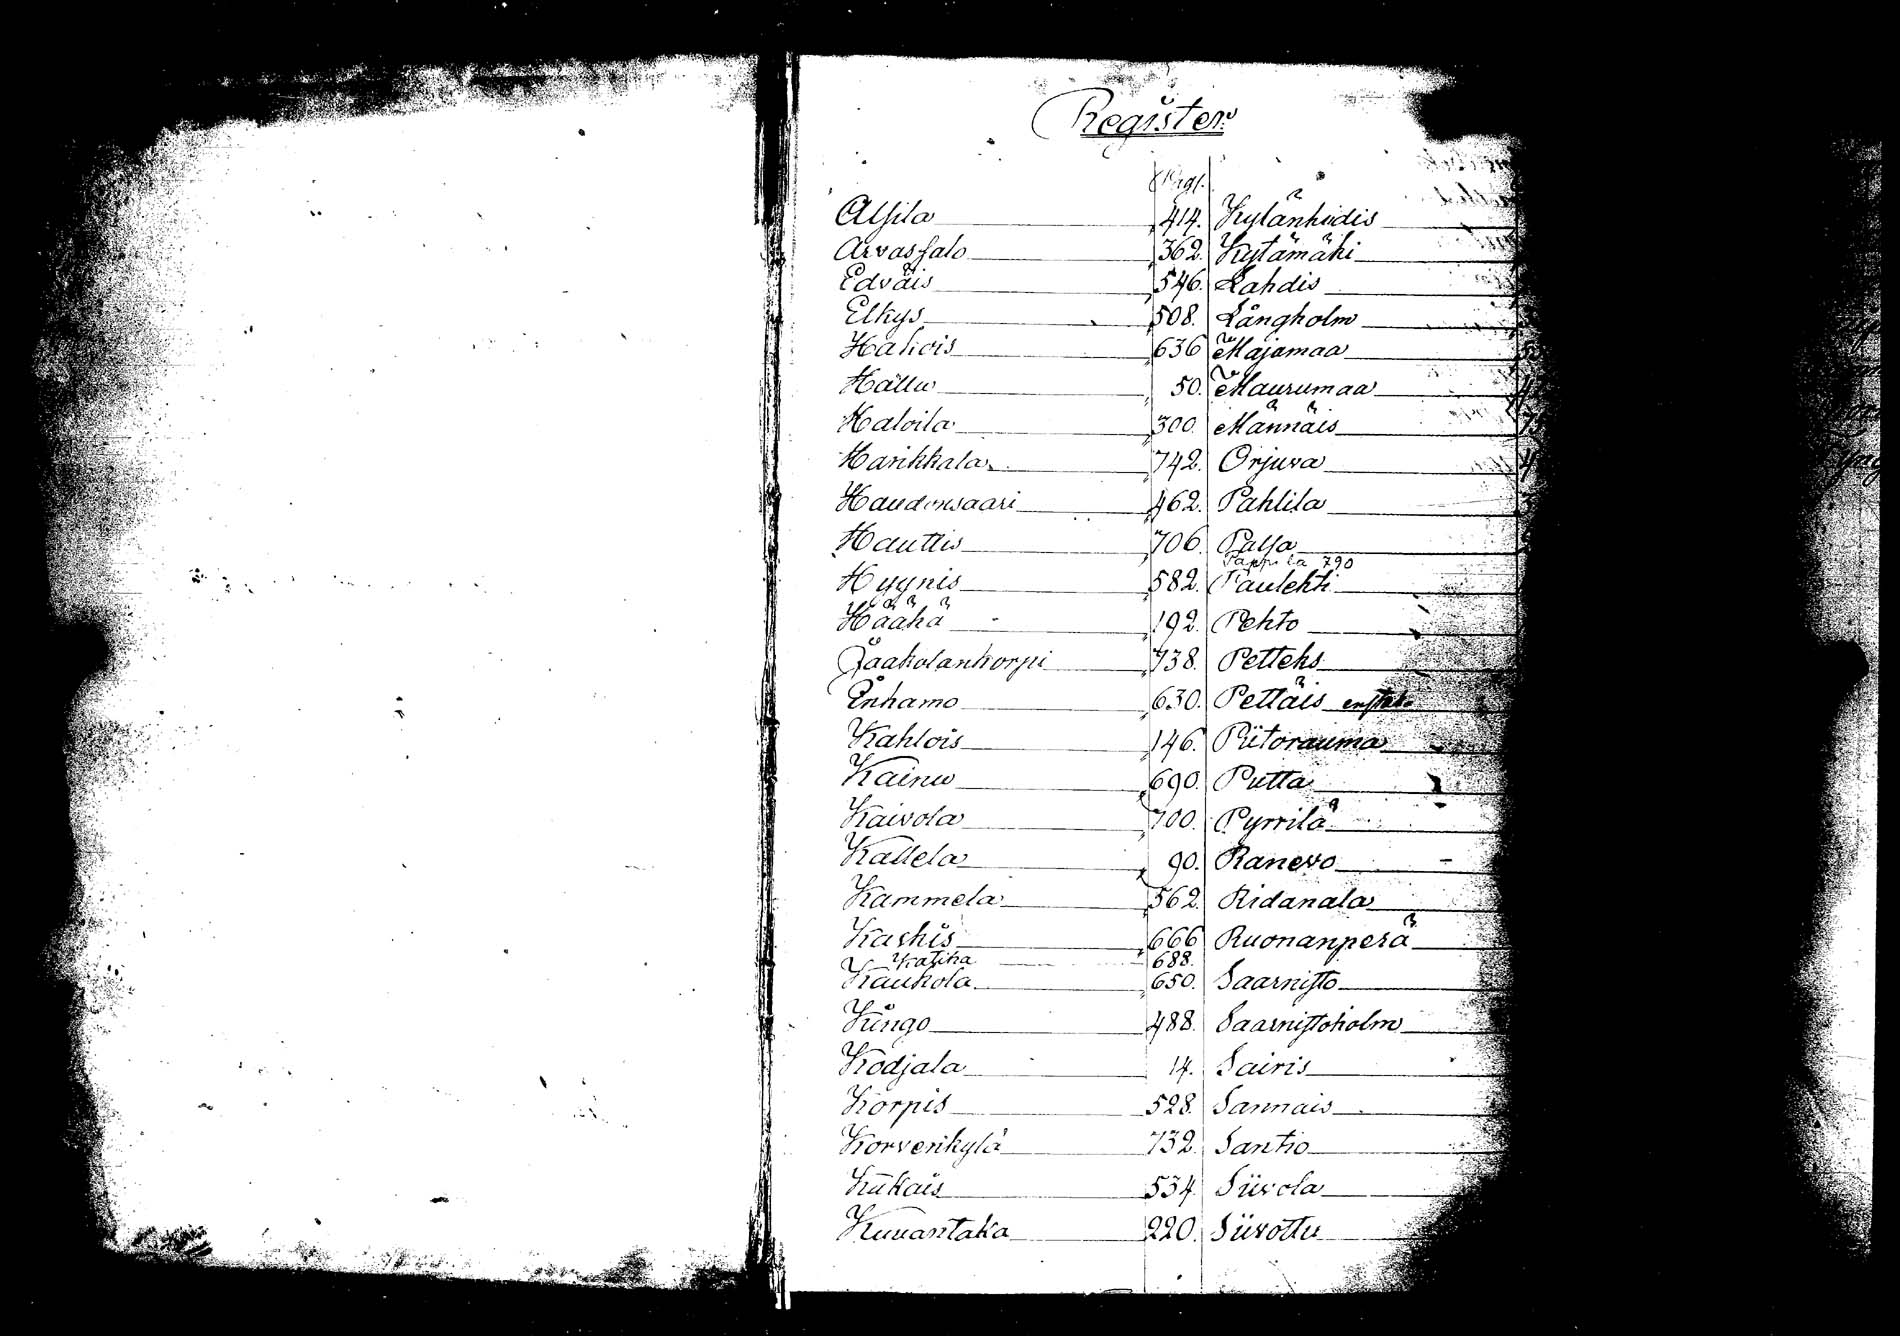 Register.
Pag.
Alsila 414. Kylänhiidis
Arvassalo 362. Kytämäki
Edväis 546. Lahdis
Elkys 508. Långholm
Halsois 636 Majamaa
Hallu 50. Maurumaa
Haloila 300. Männäis
Harikkala 742. Orjuva
Haudonsaari 462. Pahlila
Hauttis 706. Palsa
Pappila 790
Hyynis 582. Paulehti
Häähä 192. Pehto
Jaakolankorpi 738. Petteks
Inhamo 630. Pettäis
Kahlois 146. Piitorauma
Kainu 690. Putta
Kaivola 700. Pyrrilä
Kallela 90. Ranevo
Kammela 562. Ridanala
Kaskis 666 Ruonanperä
Katika 688.
Kaukola 650. Saarnisto
Kingo 488. Saarnistoholm
Kodjala 14. Sairis
Korpis 528. Sannais
Korvenkylä 732. Santio
Kukais 534. Siivola
Kuuantaka 220. Siivottu